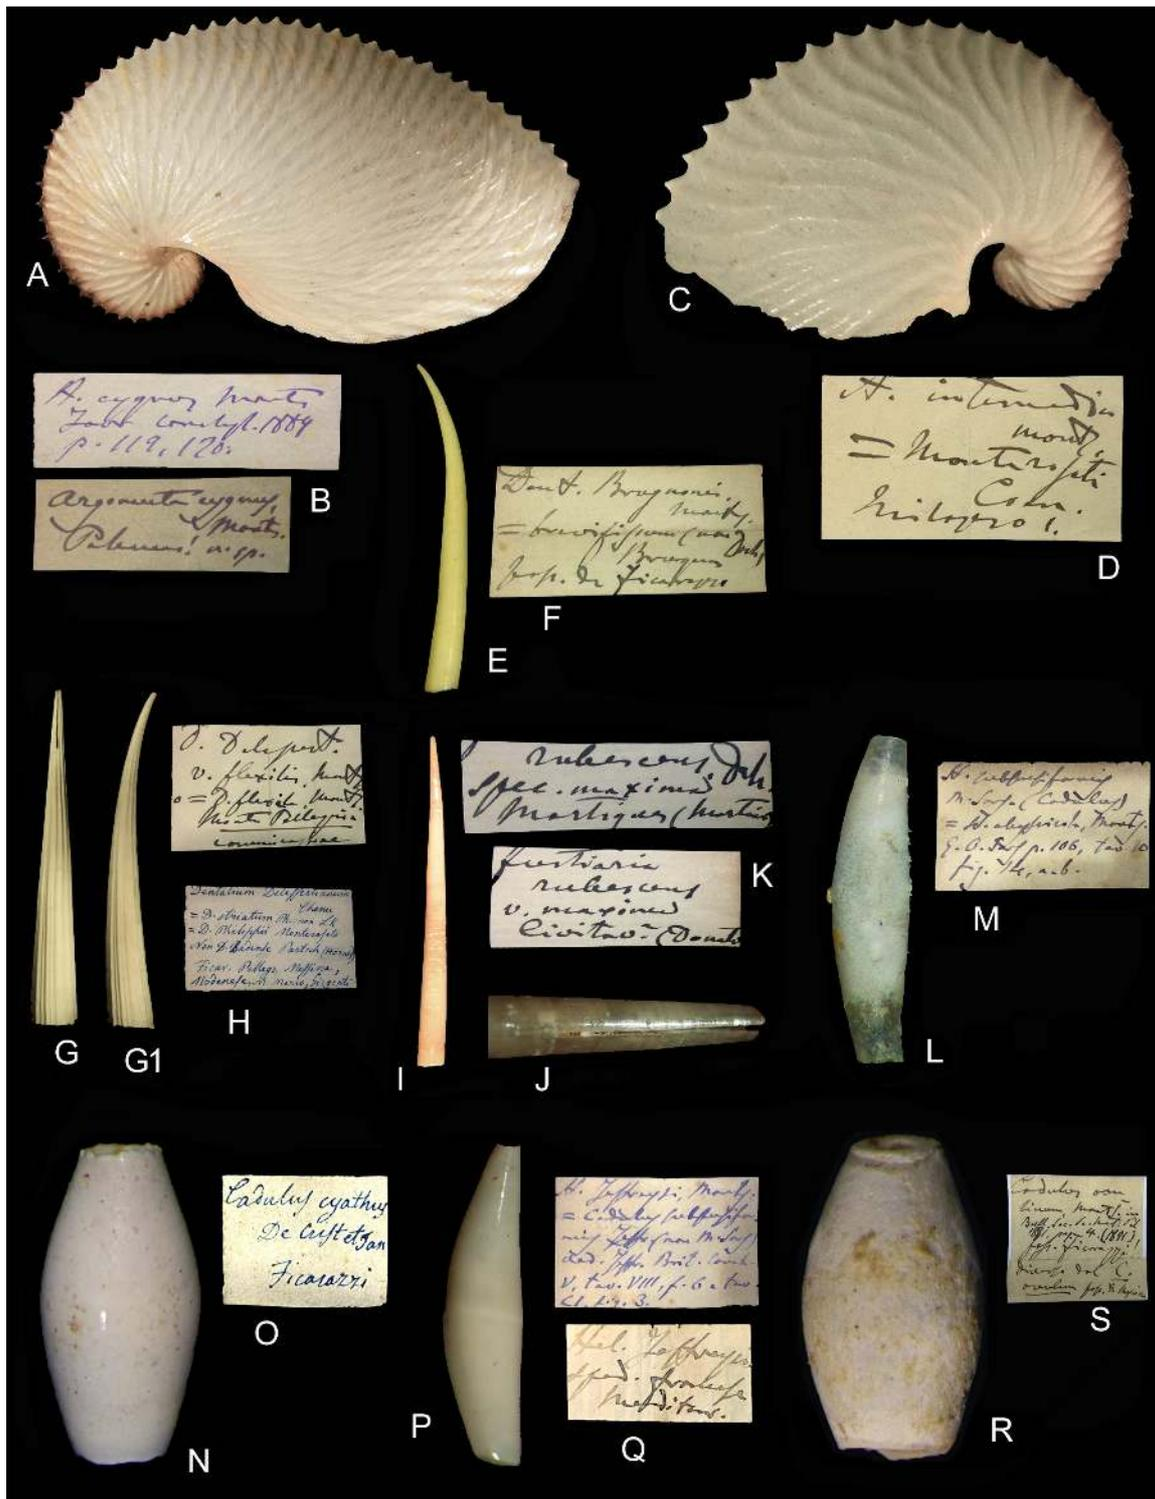 A
C
A. cygnus Monts
Journ conchyl. 1889
p. 119, 120.
Argonauta cygnus,
Monts.
n. sp.
B
A. intermedia
Mont.
= Monterosati
Coen.
D
Dent. Brugnonei,
Monts.
= brevifissum (non Desh)
foss. di Ficarazzi
F
E
D. Delessert.
v. flexilis, Monts
= D. flexile, Monts.
Monte Pellegrino
H
Dentalium Delessertianum
Chenu
= D. striatum Ph. non Lk
= D. Philippii Monterosato
Non D. Badense Partsch (Hörnes)
Ficar. Pellegr. Messina,
G
G1
rubescens Desh.
spec. maxima
Martigues (Martin)
K
fustiaria
rubescens
v. maxima
Civitav. (Donati
I
J
H. subfusiformis
M. Sars. (Cadulus)
= H. abyssicola, Monts.
G. O. Sars p. 106, tav 10
fig. 15, a-b.
M
L
Cadulus cyathus
De Crist et Jan
Ficarazzi
O
N
H. Jeffreysi, Monts.
= Cadulus subfusifor-
mis Jeffr (non M. Sars)
Jeffr. Brit. Conch.
V, tav. VIII, f. 6 e tav.
CI, fig. 3.
Hel. Jeffreysi
Mediterr.
Q
P
Cadulus ovu
lum, Monts, in
(1891),
foss. Ficarazzi
diverso dal C.
ovulum foss. di
S
R